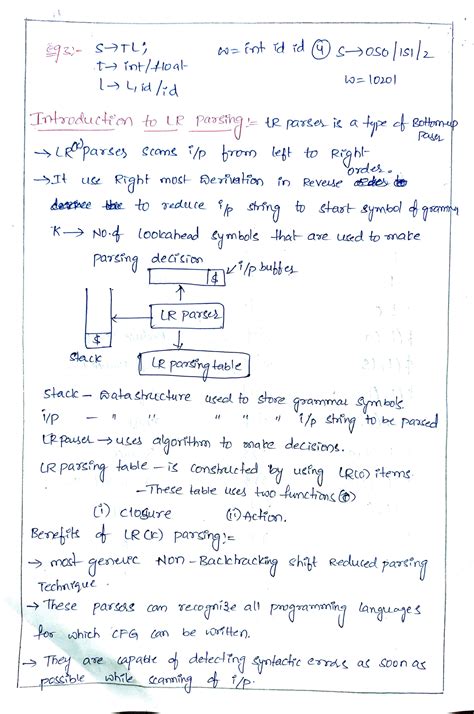 Eg3:- S→TL;     w= int id id ④ S→0S0/1S1/2
t→ int/float     w=10201
l→ L,id/id
Introduction to LR parsing:= LR parser is a type of Bottomup
Parser
→ LR(K) parser scans i/p from left to Right-
order.
→It use Right most Derivation in Reverse
to reduce i/p string to start symbol of grammar
K→ No.of lookahead symbols that are used to make
parsing decision
$ i/p buffer
LR parser
$
Stack
LR parsing table
Stack - Datastructure used to store grammar symbols.
i/p - " " " " " i/p string to be parsed
LR parser → uses algorithm to make decisions.
LR parsing table - is constructed by using LR(0) items.
- These table uses two functions
(i) closure (ii) Action.
Benefits of LR(K) parsing:=
→ most generic Non-Backtracking shift Reduced parsing
Technique.
→ These parsers can recognize all programming languages
for which CFG can be written.
→ They are capable of detecting syntactic errors as soon as
possible while scanning of i/p.